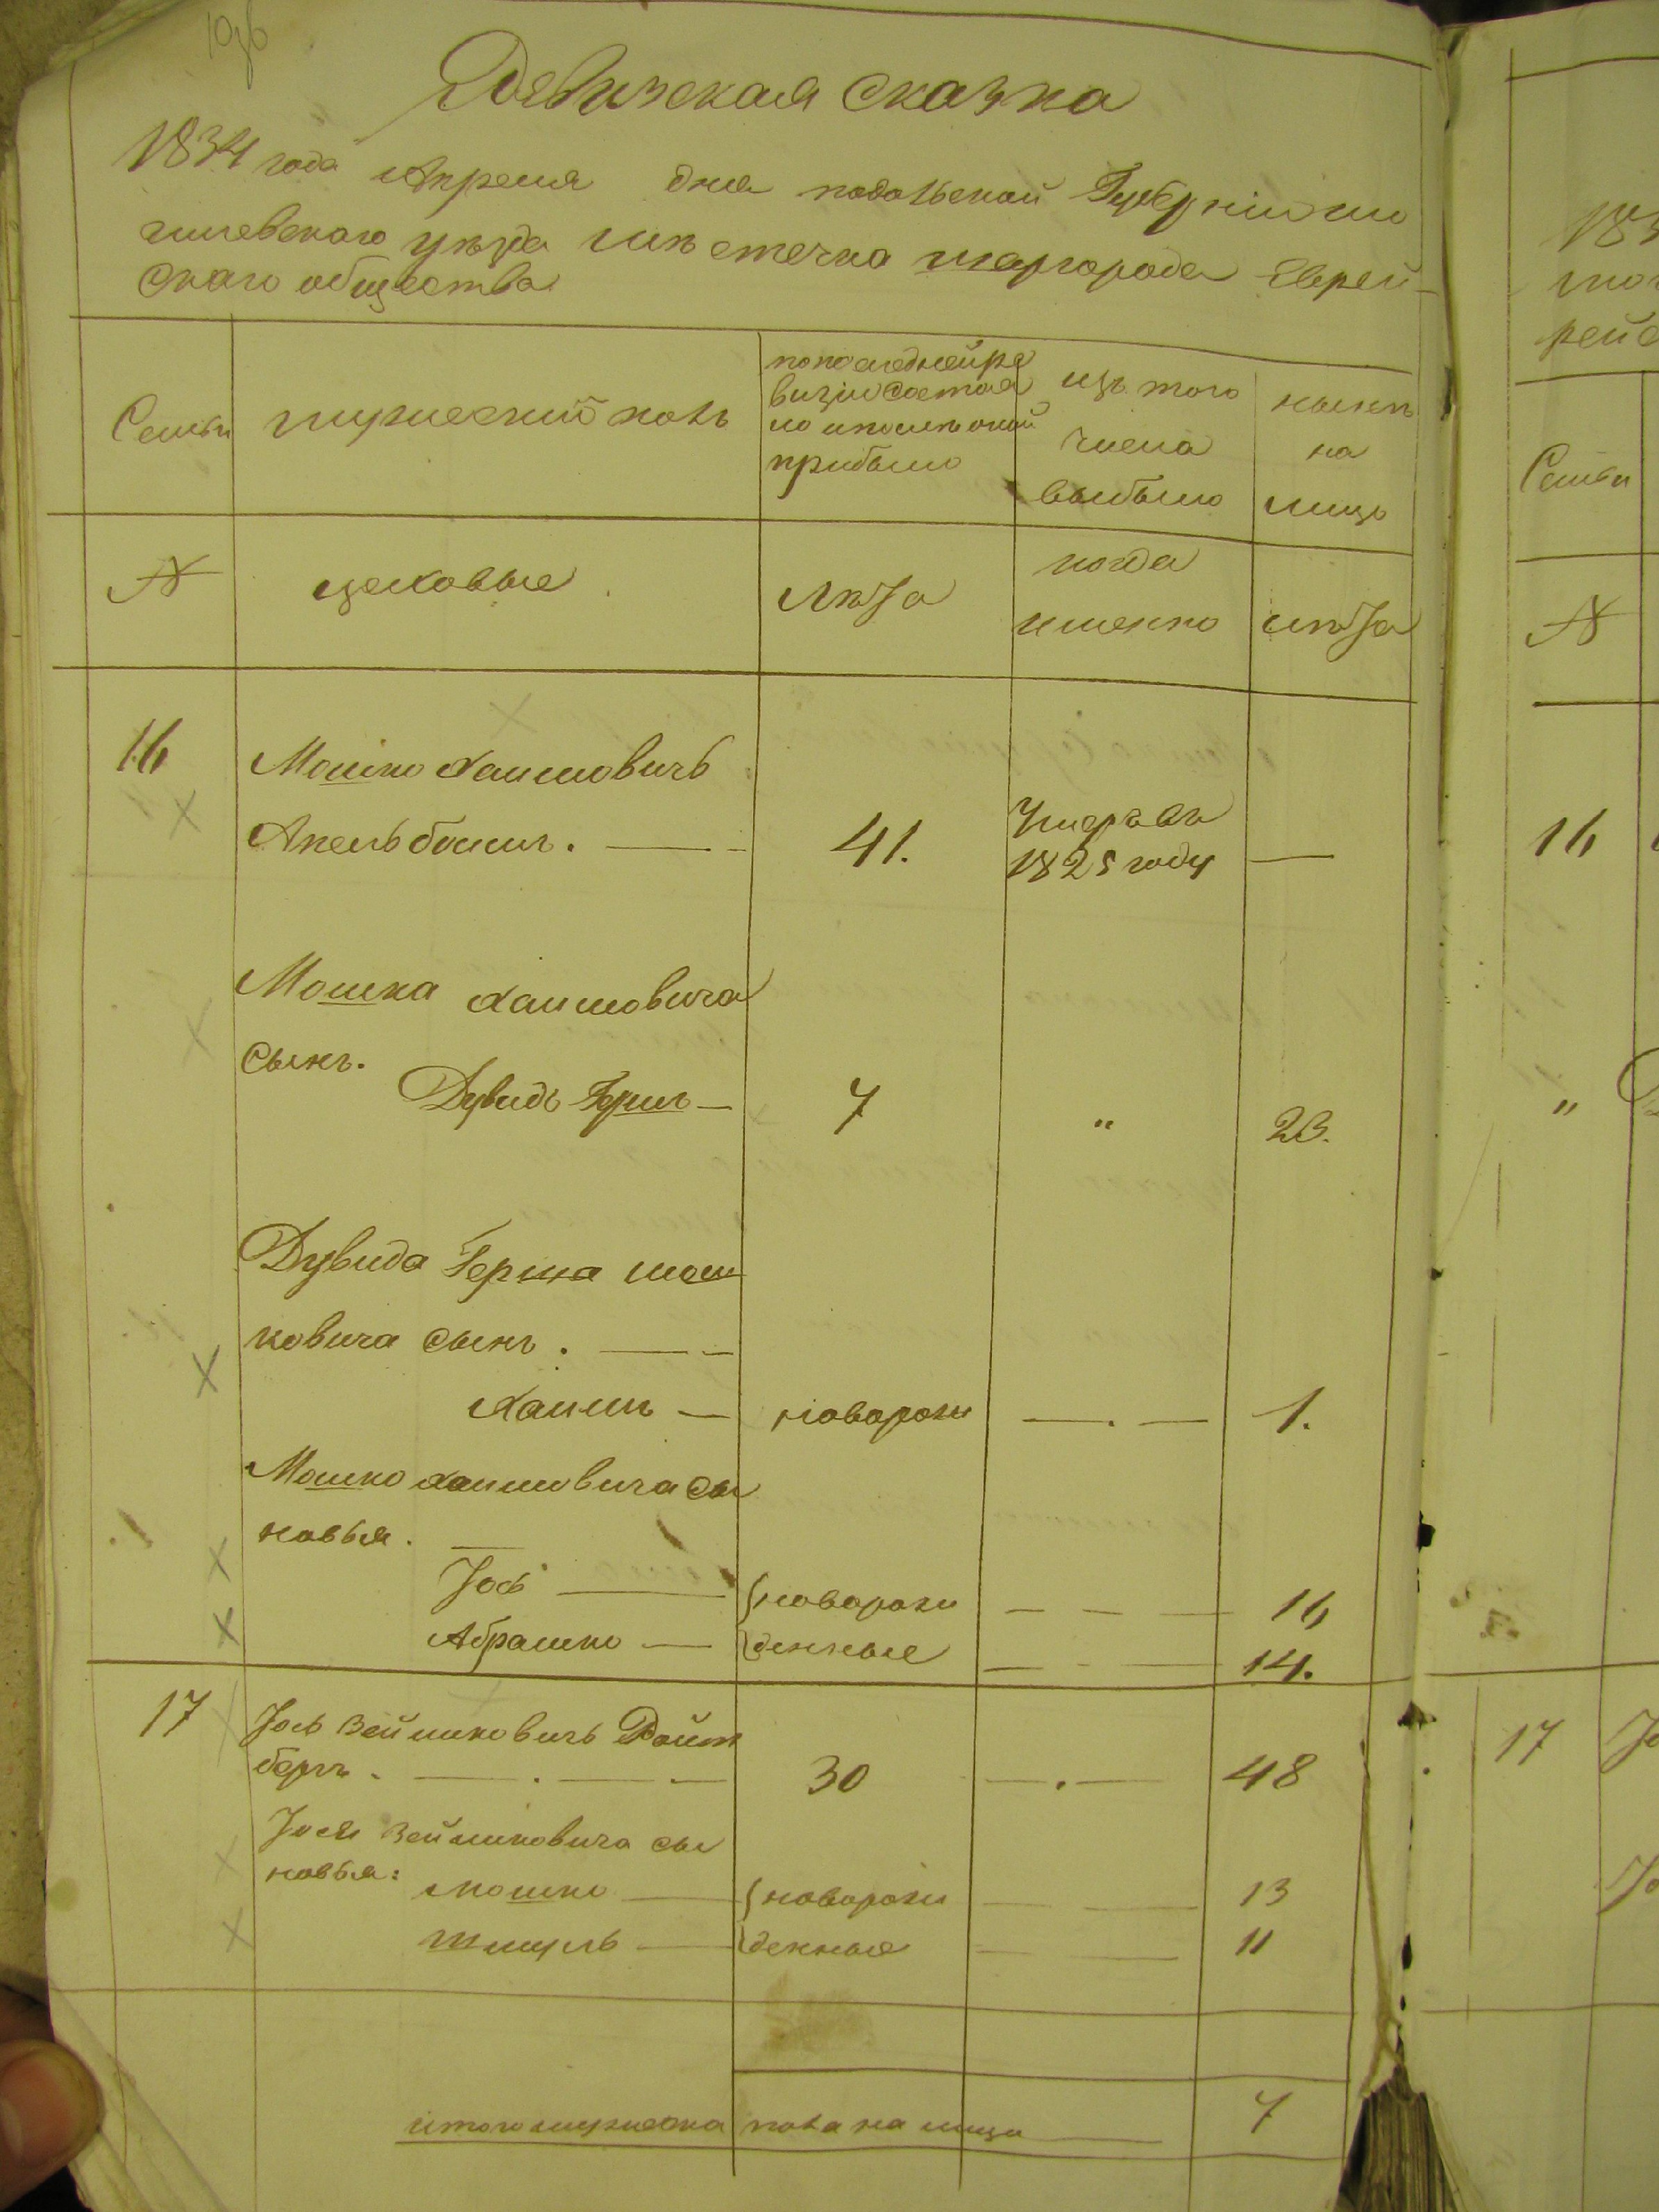 Ревизская сказка
1834 года Апреля дня подольской Губерніи мо
гилевского уезда местечка шаргорода Еврей-
скаго общества
Семьи
мужеский полъ
по последней ре
визіи состоя
ло и после оной
прибыло
изъ того
числа
выбыло
ныне
на
лицо
№
цеховые
Лѣта
когда
именно
лѣта
16
Мошко Хаимовичъ
Апельбоимъ. — -
41.
Умеръ въ
1825 году
—
Мошка Хаимовича
сынъ.
Дувидъ Гершъ —
7
"
23.
Дувида Герша Мош
ковича сынъ. — -
Хаимъ —
новорож
— . —
1.
Мошко Хаимовича сы
новья.
Іосъ —
{новорож
— — —
16
Абрашко —
{денные
— - —
14.
17
Іось Зейликовичъ Ройт
бергъ. — . — —
30
— . —
48
Іося Зейликовича сы
новья:
Мошко —
{новорож
— —
13
Шмуль —
{денные
— —
11
итого мужеска пола на лицо —
7
18
мо
рейс
Семьи
№
16
"
17